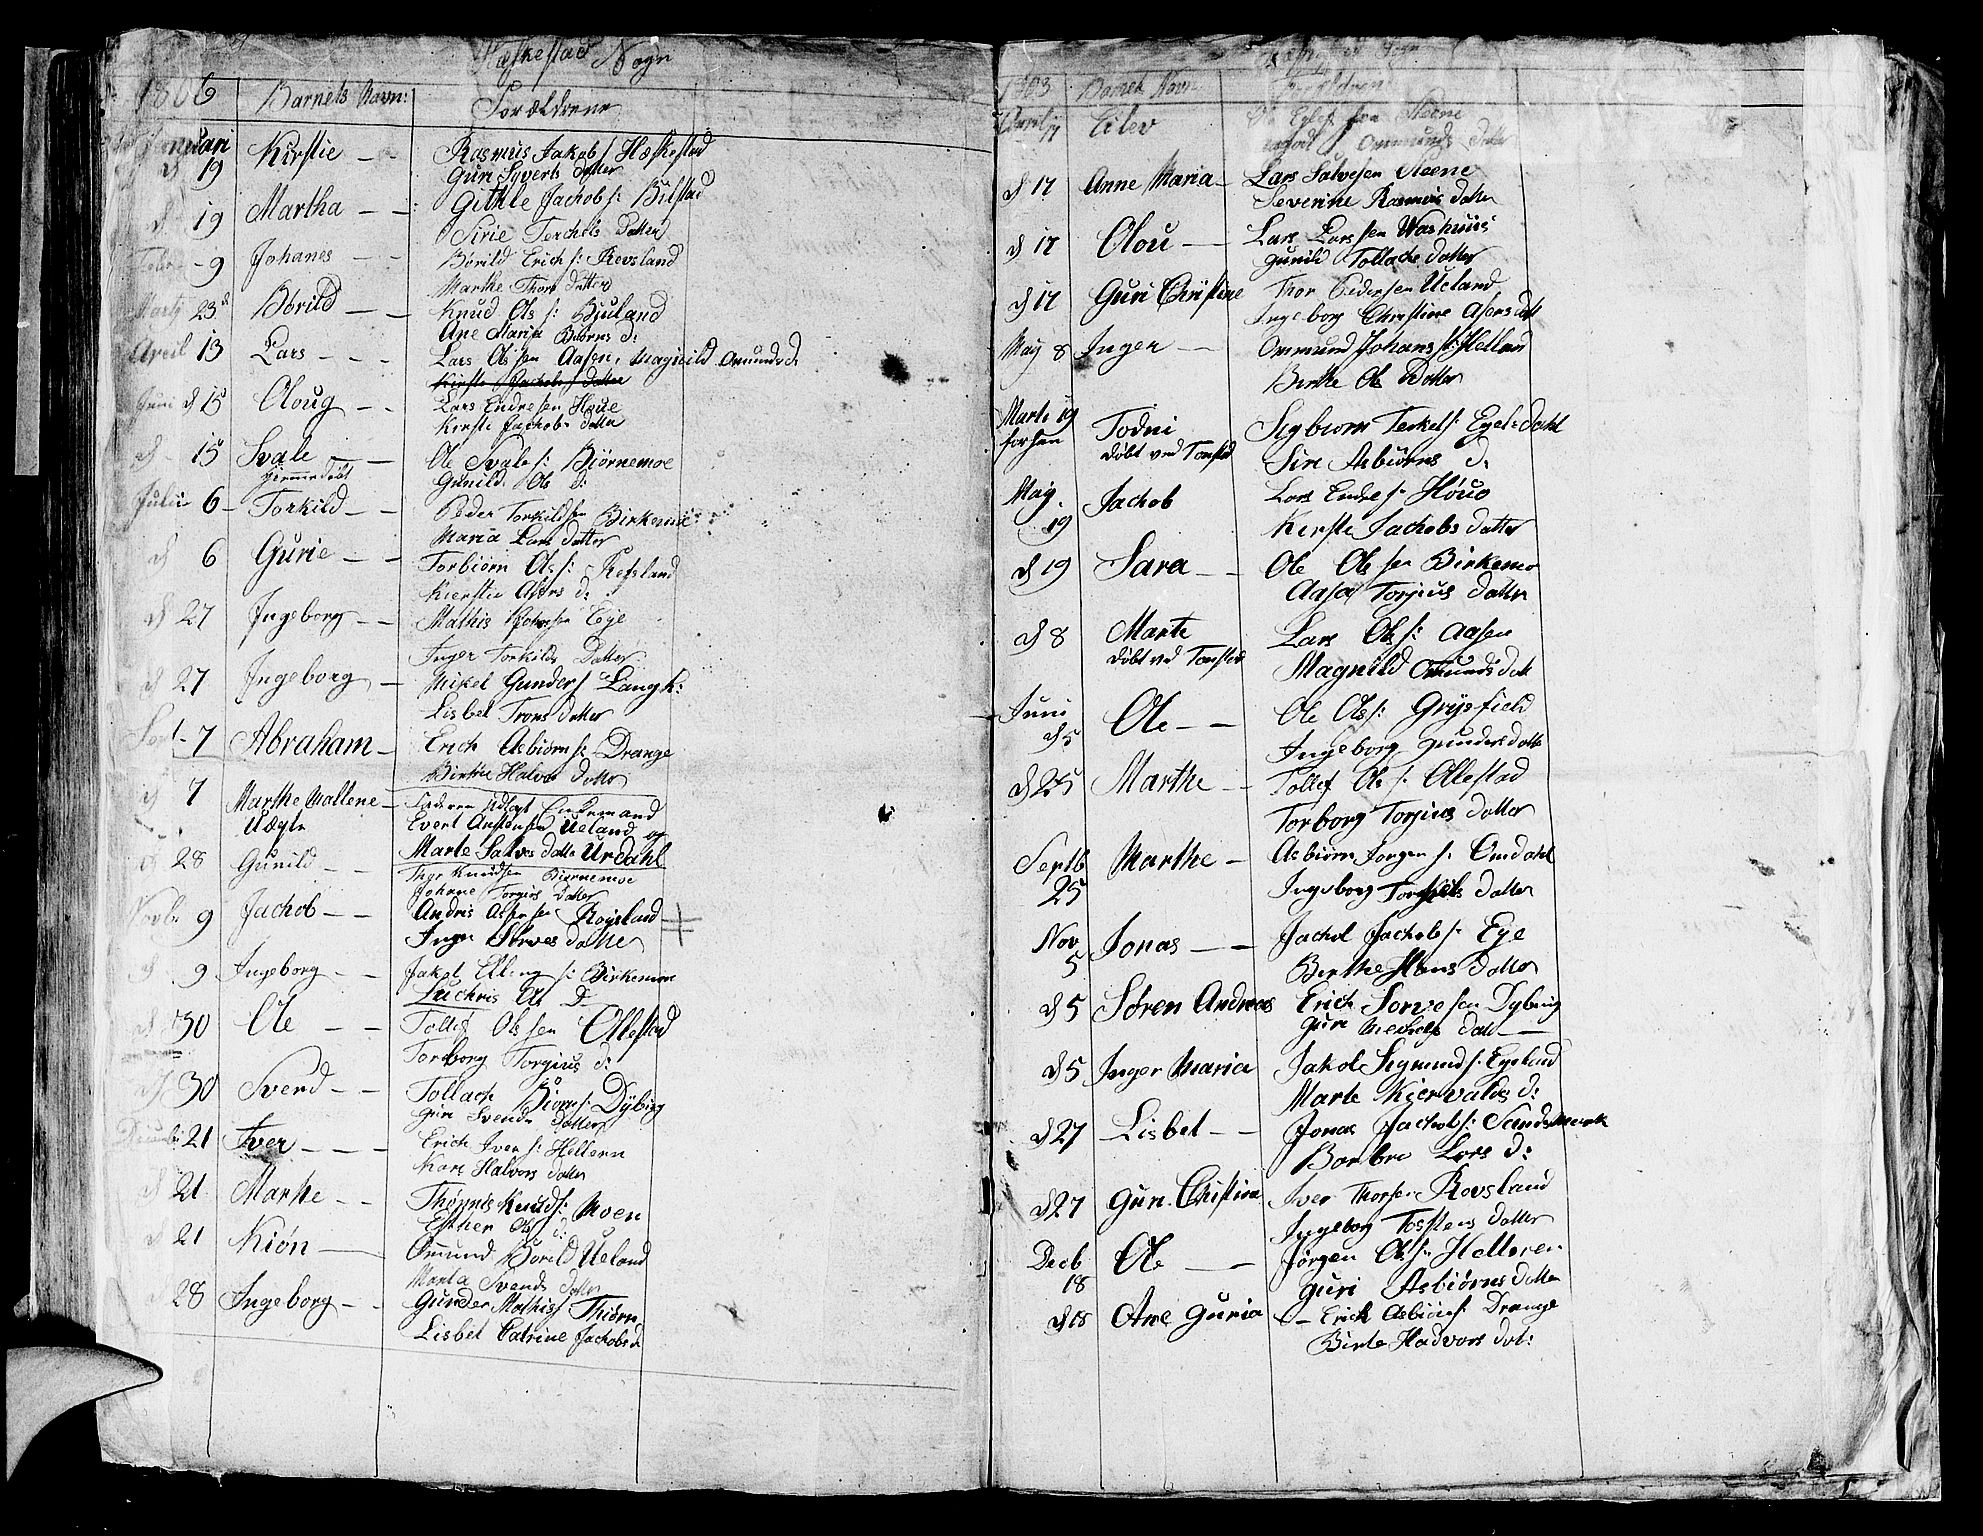 Hæskestad Sogn
1806 Barnets Navn: Forældrene
Januari
d 19 Kirstie — Rasmus Jakobs Hæskestad
Guri Syverts datter
d 19 Martha — Githle Jachobs: Bilstad
Sirie Terchels Datter
Febr 9 Johanes — Børild Erich s: Revsland
Marthe Thors datter
Marty 23 Børild — Knud Ols s: Bjuland
Ane Maria Biørns d:
April 13 Lars — Lars Olssen Aasen, Magnild Omunds d
Kirste Jachobs datter
Juni d 15 Oloug — Lars Endresen Houe
Kirsti Jachobs datter
d 15 Svale — Ole Svales: Biørnemoe
Hiemmedøbt Gunild Ols d:
Julii 6 Torkild — Peder Torkildsen Birkemoe
Maria Lars datter
d 6 Gurie — Torbiørn Ols s: Refsland
Kierstie d:
d 27 Ingeborg — Mathis Eye
Inger Torkilds Datter
d 27 Ingeborg — Mikel Gunders Langh:
Lisbet Trons datter
Sept 7 Abraham — Erich Asbiørn s: Drange
Birthe Halvors datter
d 7 Marthe Mallene — Faderen Udlagt Enkemand
Uægte Evert Austensen Ueland og
Marte Salves datter Urdahl
d 28 Gunild — Knudsen Biørnemoe
Johane Torgius Datter
Novbr 9 Jachob — Andris Røysland
Inger Sørves datter
d 9 Ingeborg — Jakob Elling s: Birkemoe
Luchris Ols D
d 30 Ole — Tollef Olssen Ollestad
Torborg Torgius d:
d 30 Svend — Tollach Biørns: Dybing
Guri Svends Datter
Decembr 21 Iver — Erich Ivers: Hellern
Kari Halvors datter
d 21 Marthe — Thønnes Knuds: Moen
Esther Ols d:
d 21 Kiøn — Omund Børild Ueland
Marta Svends datter
28 Ingeborg — Gunder Mathis Thiørn
Lisbet Catrine Jachobs d
1803 Barnets Navn Forældrene
17 Eilev Steene
Ommunds Datter
d 17 Anne Maria — Lars Salvesen Steene
Severine Rasmus datter
d 17 Olou — Lars Larssen Washuus
Gunild Tollachs datter
d 17 Guri Christine Thor Pedersen Ueland
Ingeborg Christine Asers dat
May 8 Inger — Ommund Johans s: Helland
Birthe Ols Datter
Marti 19 Todni Sigbiørn Terkels: Egelsdahl
døbt ved Tonstad Siri Asbiørns d:
May 19 Jachob Lars Endres: Houe
Kirste Jachobs datter
d 19 Sara — Ole Olssen Birkemo
Aasa Torjius datter
d 8 Marte Lars Ols: Aasen
døbt ved Tonstad Magnild Omunds dat
Juni
d 5 Ole — Ole Olss: Grysfield
Ingeborg Gunders datte
d 25 Marthe — Tollef Ols: Ollestad
Torborg Torjius datter
Septb
25 Marthe — Asbiørn Jørgen s: Omdahl
Ingeborg Torchils datter
Nov
5 Jonas — Jachob Jachobs: Eye
Birthe Hans datter
d 5 Søren Andreas Erich Sørvesen Dybing
Guri Mechels datt —
d 5 Inger Maria Jakob Sigmunds: Egeland
Marte Kiervalds d:
d 27 Lisbet — Jonas Jachobs: Sandsmark
Barbro Lars d:
d 27 Guri Christina Iver Thorsen Revsland
Ingeborg Tostens datter
Decb
18 Ole — Jørgen Ols: Helleren
Guri Asbiørns datter
d 18 Ane Guria — Erich Asbiørns: Drange
Birte Hadvors dat: